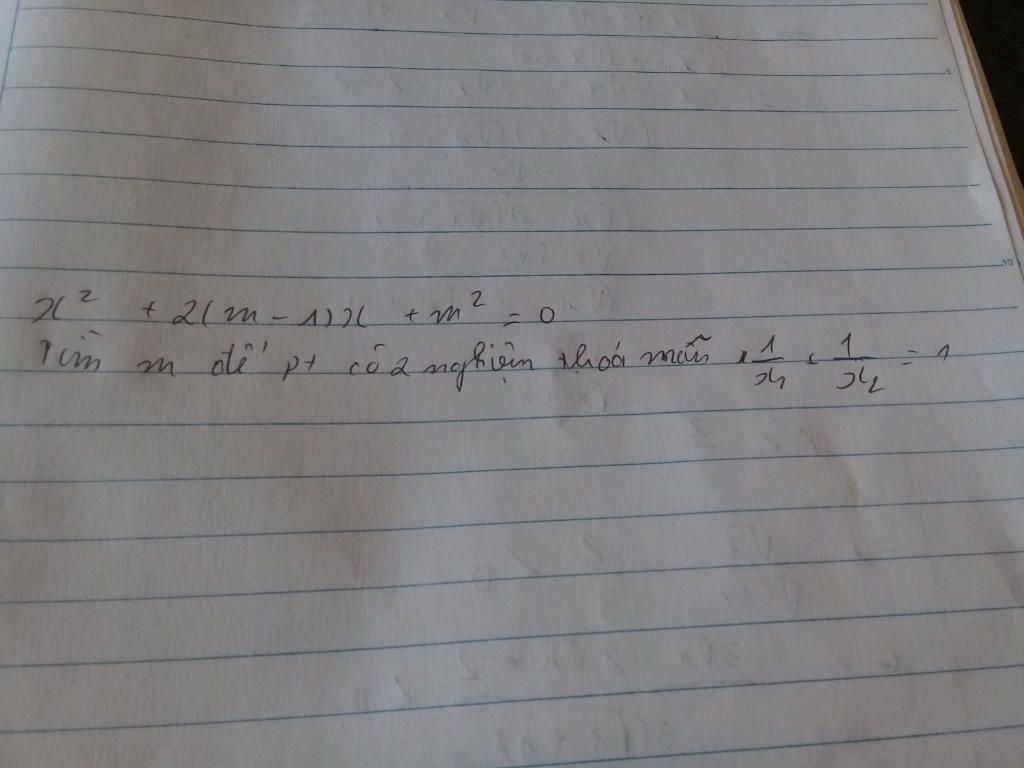 x² + 2(m - 1)x + m² = 0
Tìm m để pt có 2 nghiện thoả mãn 1/x₁ + 1/x₂ = 1
10